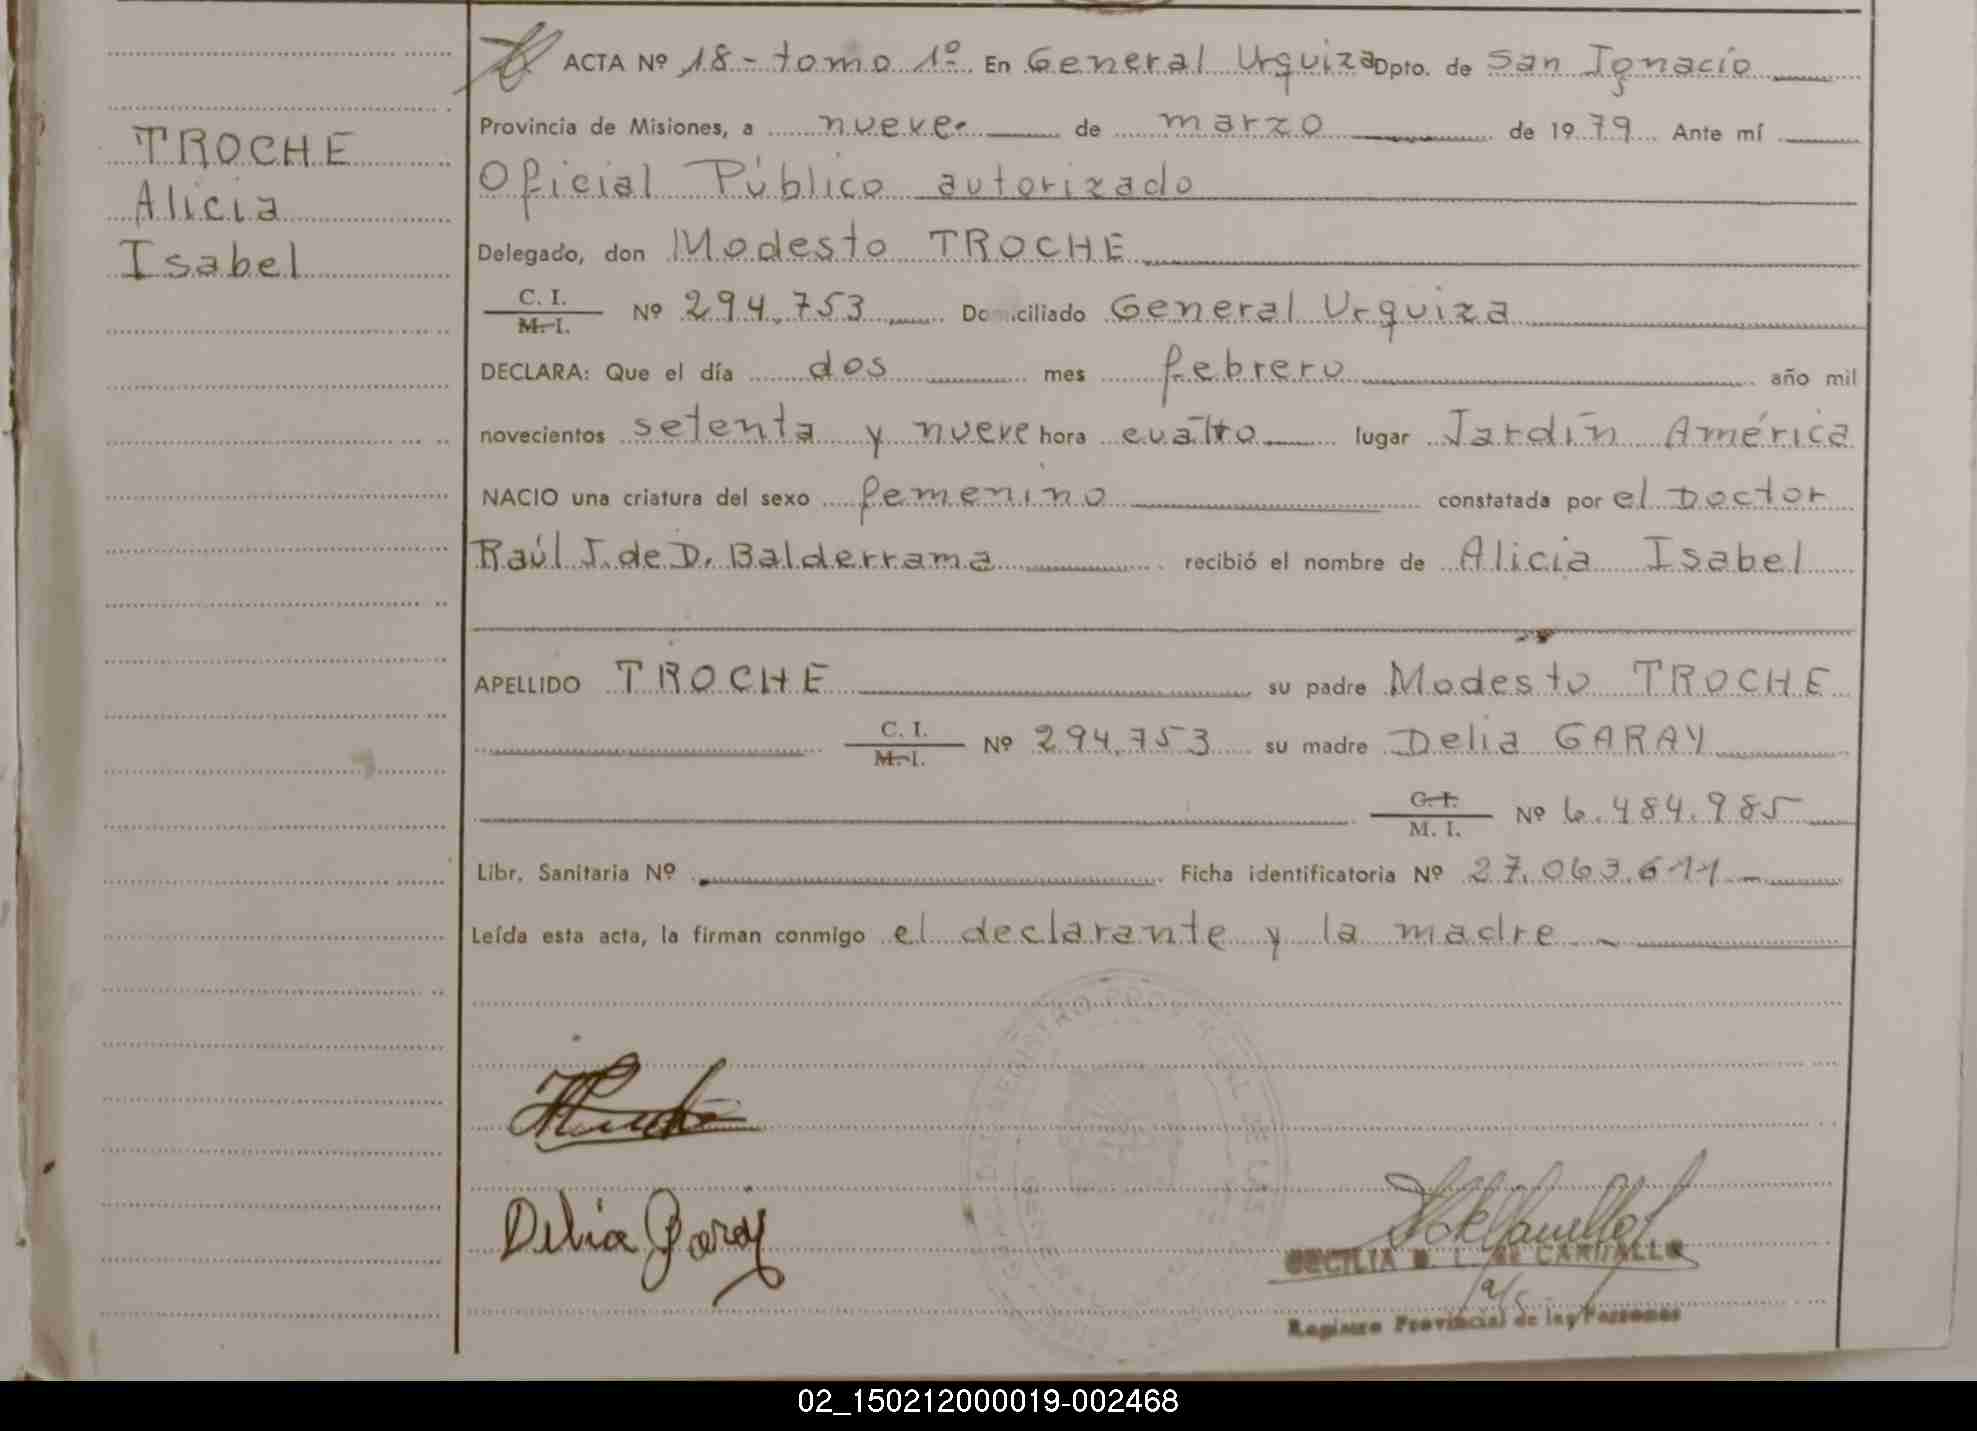 ACTA Nº 18 - tomo 1º. En General Urquiza Dpto. de San Ignacio
Provincia de Misiones, a nueve de marzo de 1979 Ante mí
TROCHE
Oficial Público autorizado
Alicia
Delegado, don Modesto TROCHE
Isabel
C. I.
M. I. Nº 294.753 Domiciliado General Urquiza
DECLARA: Que el día dos mes febrero año mil
novecientos setenta y nueve hora cuatro lugar Jardín América
NACIO una criatura del sexo femenino constatada por el Doctor
Raúl J. de D. Balderrama recibió el nombre de Alicia Isabel
APELLIDO TROCHE su padre Modesto TROCHE
C. I.
M. I. Nº 294.753 su madre Delia GARAY
C. I.
M. I. Nº 6.484.985
Libr. Sanitaria Nº Ficha identificatoria Nº 27.063.611
Leída esta acta, la firman conmigo el declarante y la madre
Delia Garay
CECILIA L. de CARVALLO
Registro Provincial de las Personas
02_150212000019-002468